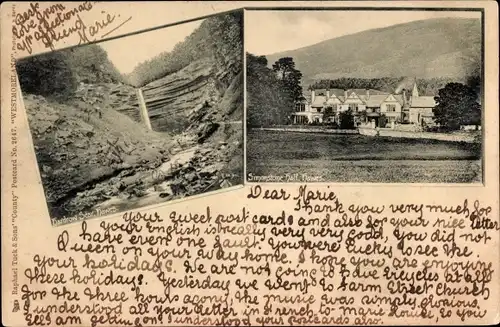 Best
love from
an affectionate
friend
Marie
Raphael Tuck & Sons' "County" Postcard No. 2647. "WESTMORELAND"
Simonstone Hall, Hawes.
Dear Marie,
Thank you very much for
your sweet post cards and also for your nice letter
your English is really very very good, you did not
have even one fault. You were lucky to see the
Queen on your way home. I hope you are enjoying
your holidays. We are not going to have bicycles at all
these holidays. Yesterday we went to Farm Street Church
for the three hours agony, the music was simply glorious,
I understood all your letter in French to marie Louise, so you
see I am getting on. I understood your postcards also.